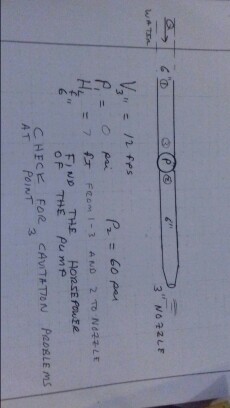 Q →
WATER
6" ① ③ P ② 6" 3" NOZZLE
V3" = 12 fps
P1 = 0 psi P2 = 60 psi
HL6" = 7 ft FROM 1-3 AND 2 TO NOZZLE
FIND THE HORSEPOWER
OF THE PUMP
CHECK FOR CAVITATION PROBLEMS
AT POINT 3